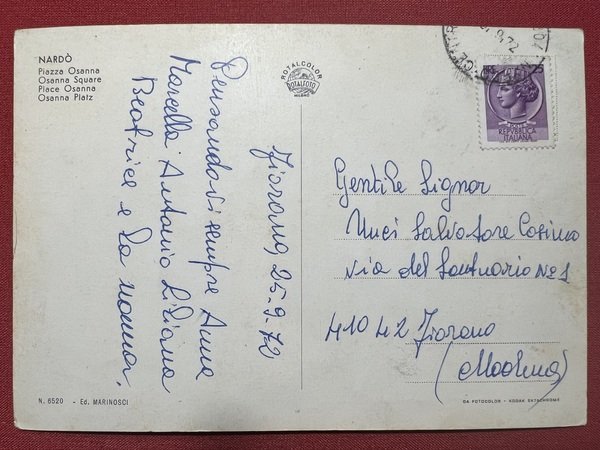 NARDÒ
Piazza Osanna
Osanna Square
Place Osanna
Osanna Platz
ROTALCOLOR
ROTALFOTO
MILANO
Fiorano, 25-9-72
Pensandovi sempre Anna
Marcella Antonio Liliana
Beatrice e la nonna.
N. 6520 - Ed. MARINOSCI
9.72
POSTE
REPVBBLICA
ITALIANA
Gentile Signor
Salvatore Cosimo
Via del Santuario N°1
41042 Fiorano
(Modena)
DA FOTOCOLOR - KODAK EKTACHROME